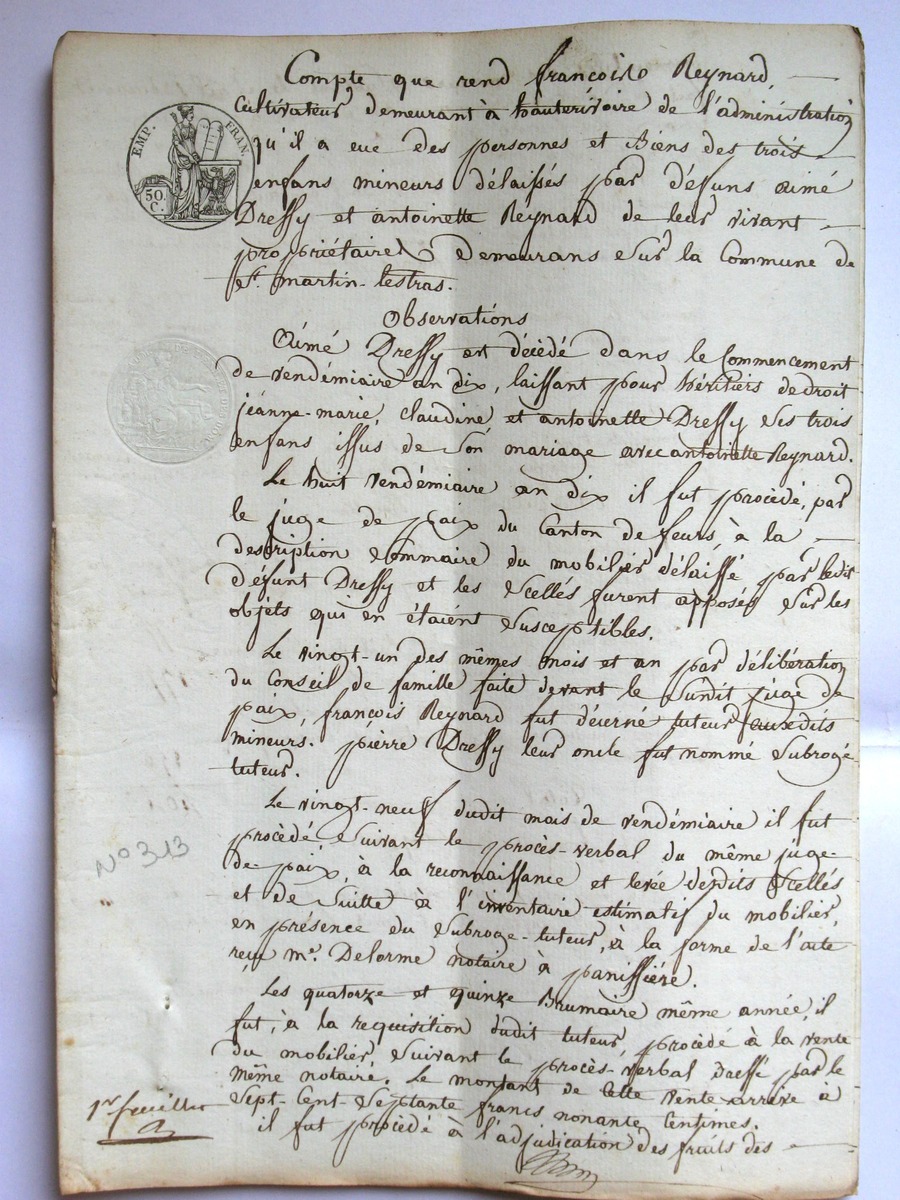 Compte que rend françois Reynard,
Cultivateur demeurant à hauterivoire de l'administration
qu'il a eue des personnes et Biens des trois
enfans mineurs délaissés par défuns aimé
Dressy et antoinette Reynard de leur vivant
propriétaires demeurans sur la Commune de
St. martin-lestras.
Observations
Aimé Dressy est décédé dans le Commencement
de vendémiaire an dix, laissant pour héritiers de droit
jéanne-marie, claudine, et antoinette Dressy ses trois
enfans issus de son mariage avec antoinette Reynard.
Le huit vendémiaire an dix il fut procédé, par
le juge de paix du Canton de feurs, à la
description sommaire du mobilier délaissé par ledit
défunt Dressy et les scellés furent apposés sur les
objets qui en étaient susceptibles.
Le vingt-un des mêmes mois et an par délibération
du Conseil de famille faite devant le susdit juge de
paix, françois Reynard fut décerné tuteur auxdits
mineurs. pierre Dressy leur oncle fut nommé subrogé
tuteur.
Le vingt-neuf dudit mois de vendémiaire il fut
procédé, suivant le procès-verbal du même juge
de paix, à la reconnaissance et levée desdits scellés
et de suitte à l'inventaire estimatif du mobilier,
en présence du subrogé-tuteur, à la forme de l'acte
reçu me. Delorme notaire à panissiére.
Les quatorze et quinze Brumaire même année, il
fut, à la requisition dudit tuteur, procédé à la vente
du mobilier, suivant le procès-verbal Dressé par le
même notaire. Le montant de Cette vente arrive à
Sept-Cent-Septante francs nonante Centimes.
il fut procédé à l'adjudication des fruits des
EMP. FRAN.
50
C.
N° 313
1er feuillet